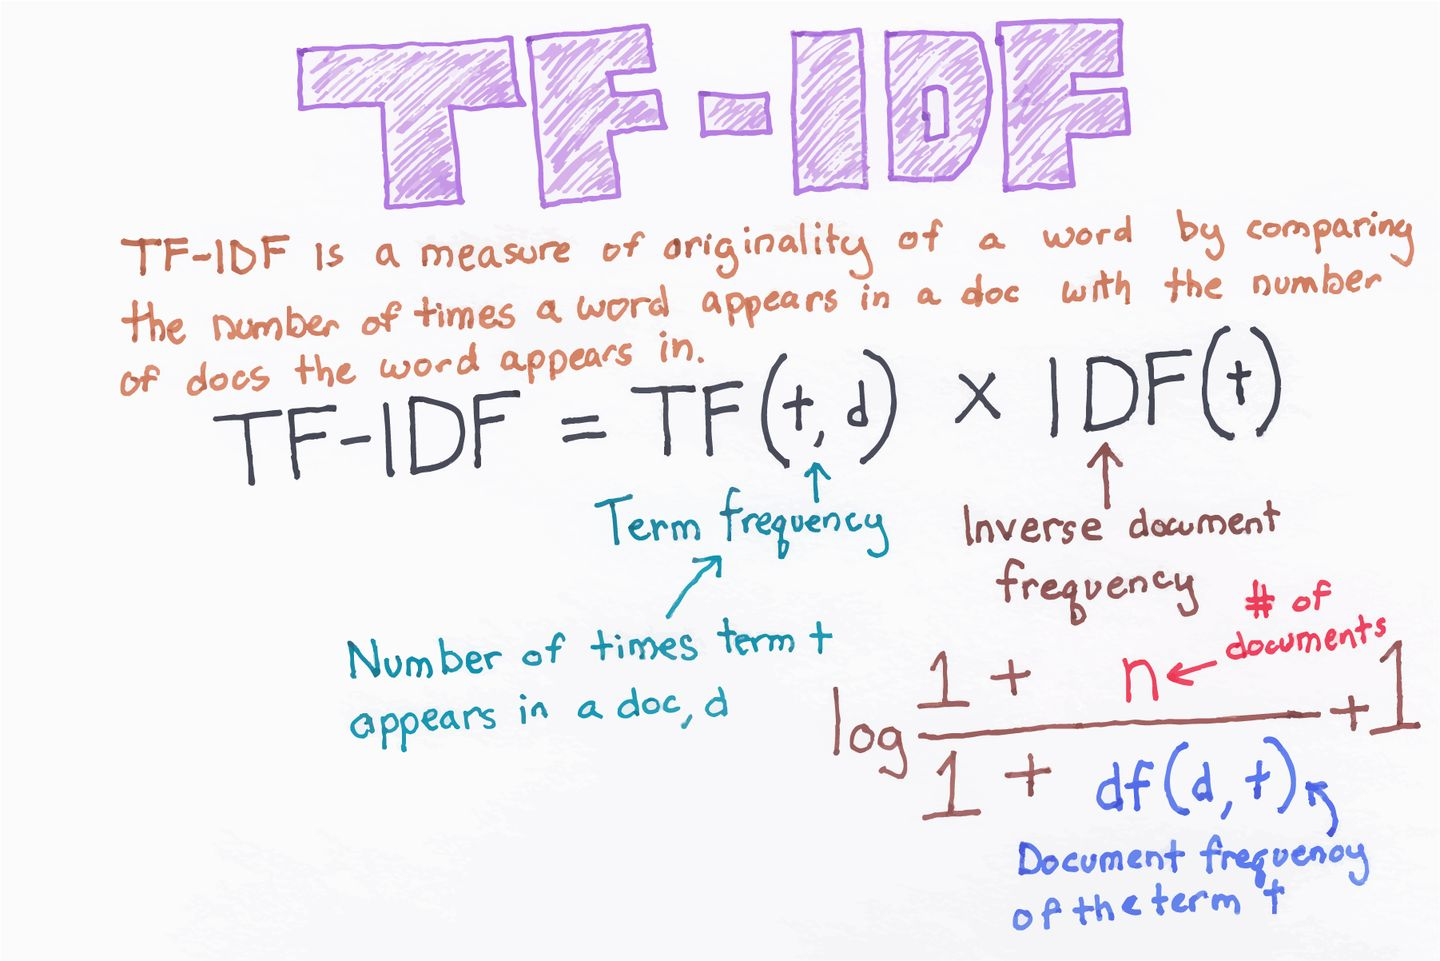 TF-IDF
TF-IDF is a measure of originality of a word by comparing
the number of times a word appears in a doc with the number
of docs the word appears in.
TF-IDF = TF(t, d) × IDF(t)
Term frequency
Inverse document
frequency
Number of times term t
appears in a doc, d
# of
documents
log
1 + n
1 + df(d, t)
+ 1
Document frequency
of the term t